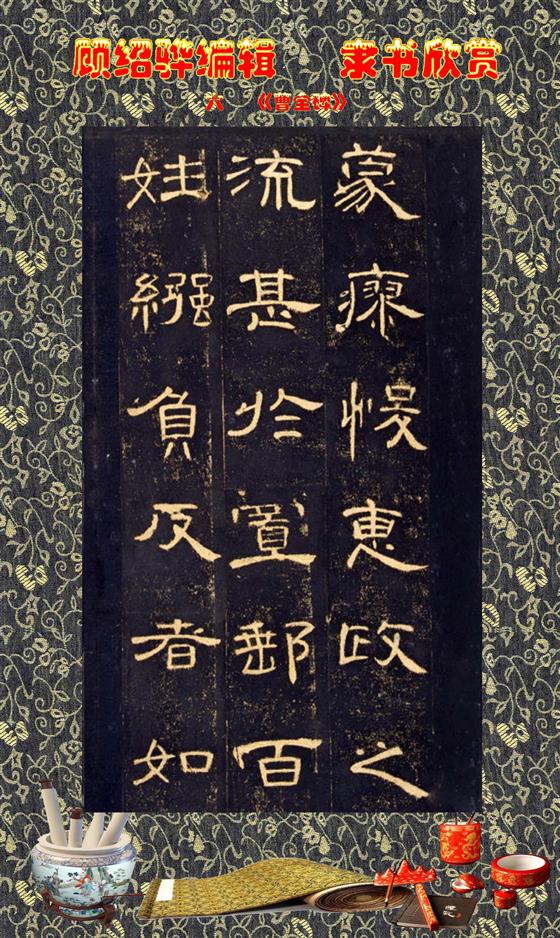 顾绍骅编辑 隶书欣赏
六 《曹全碑》
蒙瘳悛惠政之
流甚於置郵百
姓繈負反者如